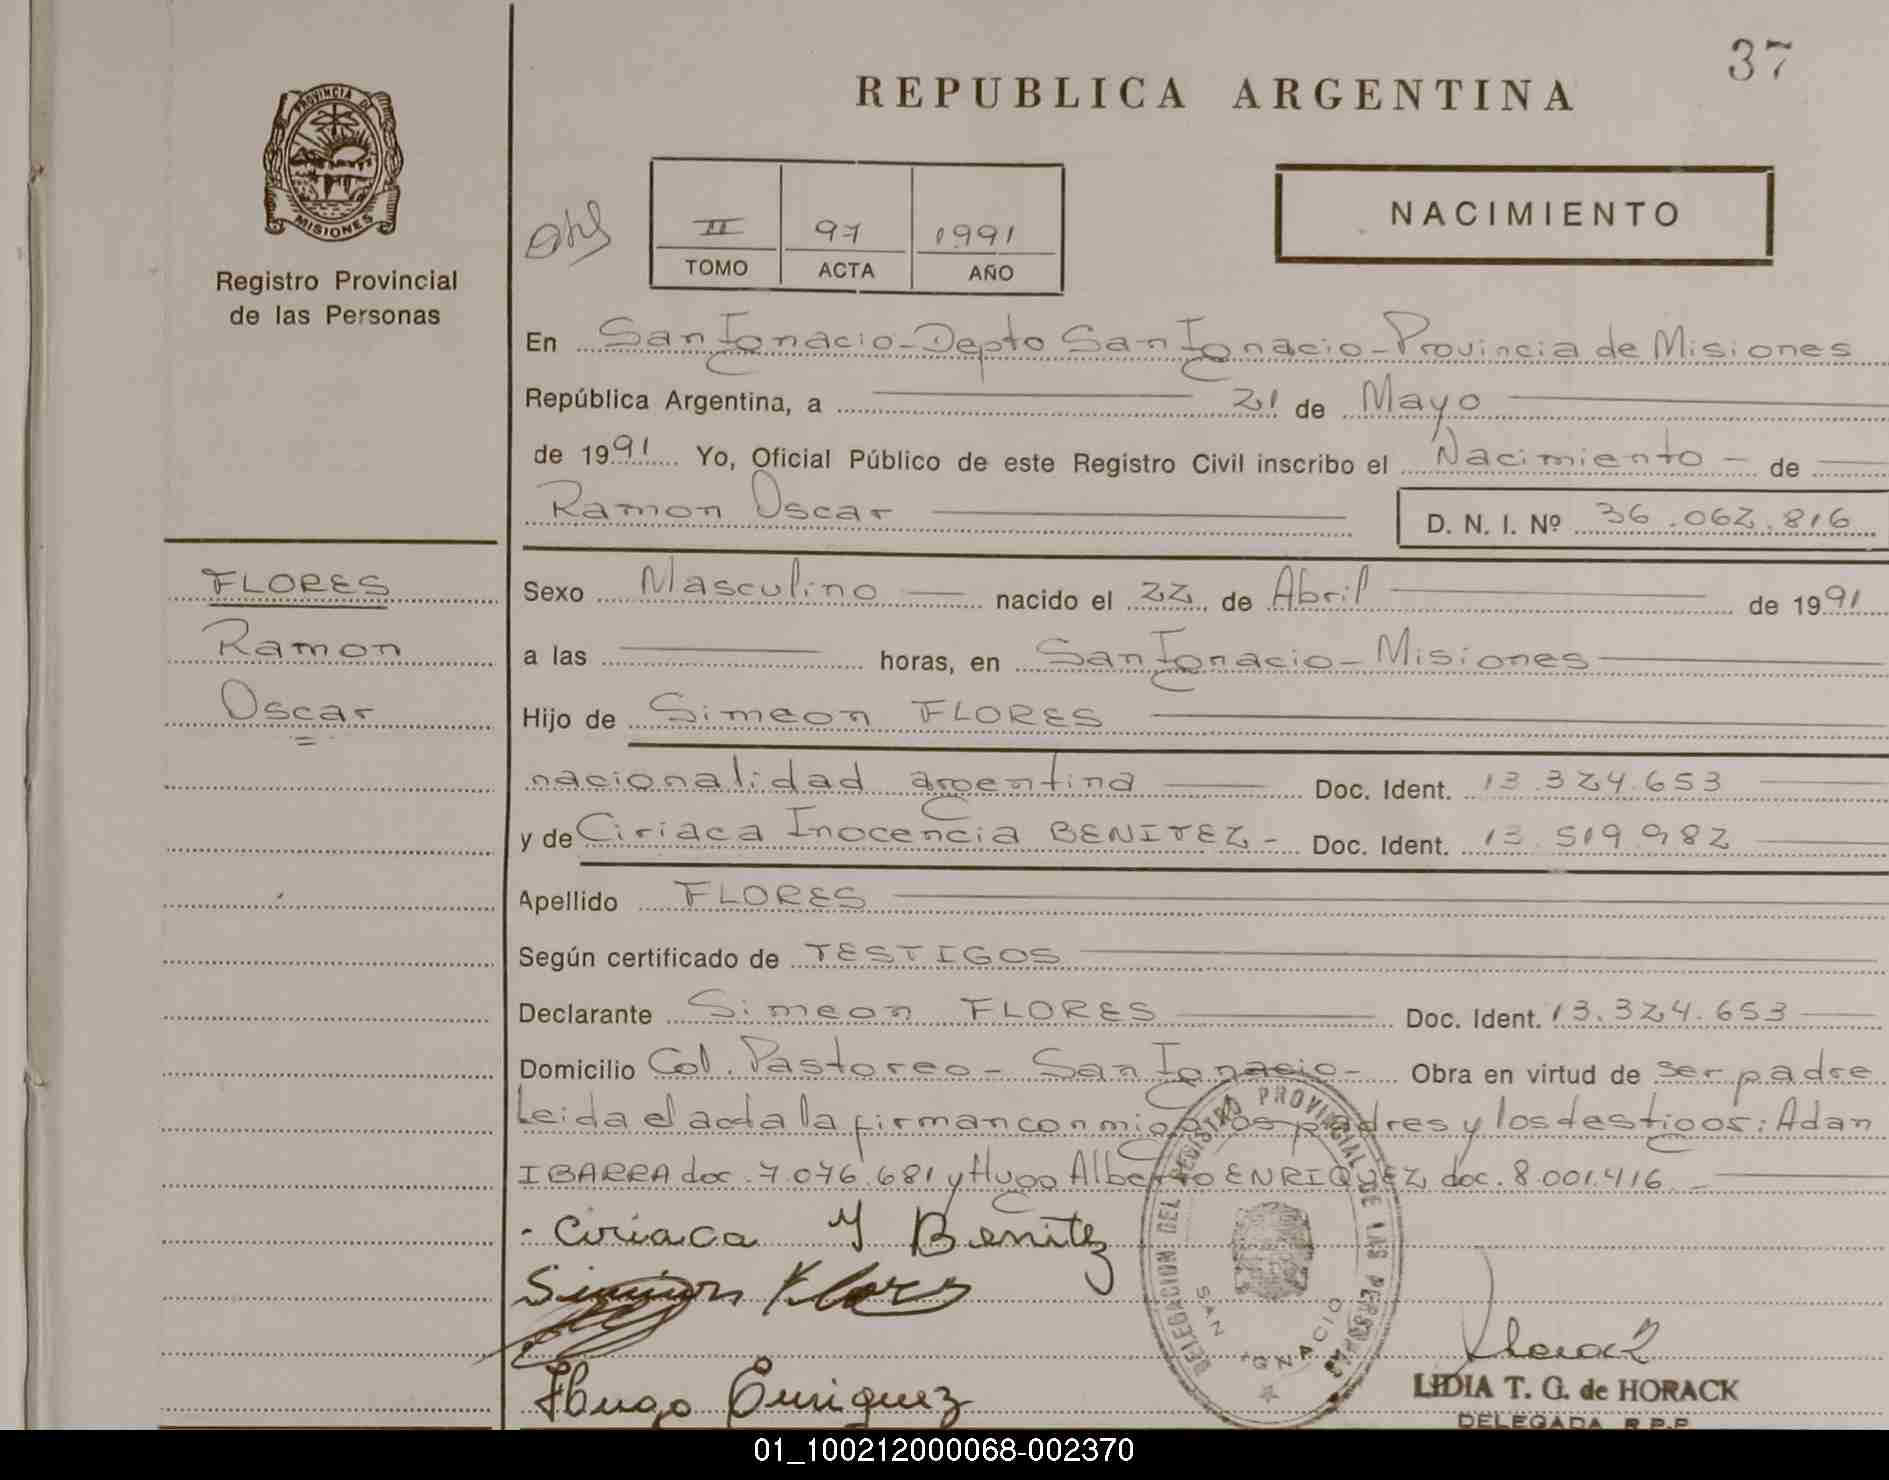 37
REPUBLICA ARGENTINA
PROVINCIA DE
MISIONES
Registro Provincial
de las Personas
II 97 1991
TOMO ACTA AÑO
NACIMIENTO
En San Ignacio - Depto San Ignacio - Provincia de Misiones
República Argentina, a 21 de Mayo
de 1991 Yo, Oficial Público de este Registro Civil inscribo el Nacimiento - de
Ramon Oscar D. N. I. Nº 36.062.816
FLORES
Ramon
Oscar
Sexo Masculino nacido el 22 de Abril de 1991
a las horas, en San Ignacio - Misiones
Hijo de Simeon FLORES
nacionalidad argentina Doc. Ident. 13.324.653
y de Ciriaca Inocencia BENITEZ - Doc. Ident. 13.519.982
Apellido FLORES
Según certificado de TESTIGOS
Declarante Simeon FLORES Doc. Ident. 13.324.653
Domicilio Col. Pastoreo - San Ignacio - Obra en virtud de ser padre
Leida el acta la firman conmigo los padres y los testigos: Adan
IBARRA doc. 7.076.681 y Hugo Alberto ENRIQUEZ doc. 8.001.416
- Ciriaca Y Benitez
Simion Flores
Hugo Enriquez
DELEGACION DEL REGISTRO PROVINCIAL DE LAS PERSONAS
SAN IGNACIO
Horack
LIDIA T. G. de HORACK
DELEGADA R.P.P.
01_100212000068-002370